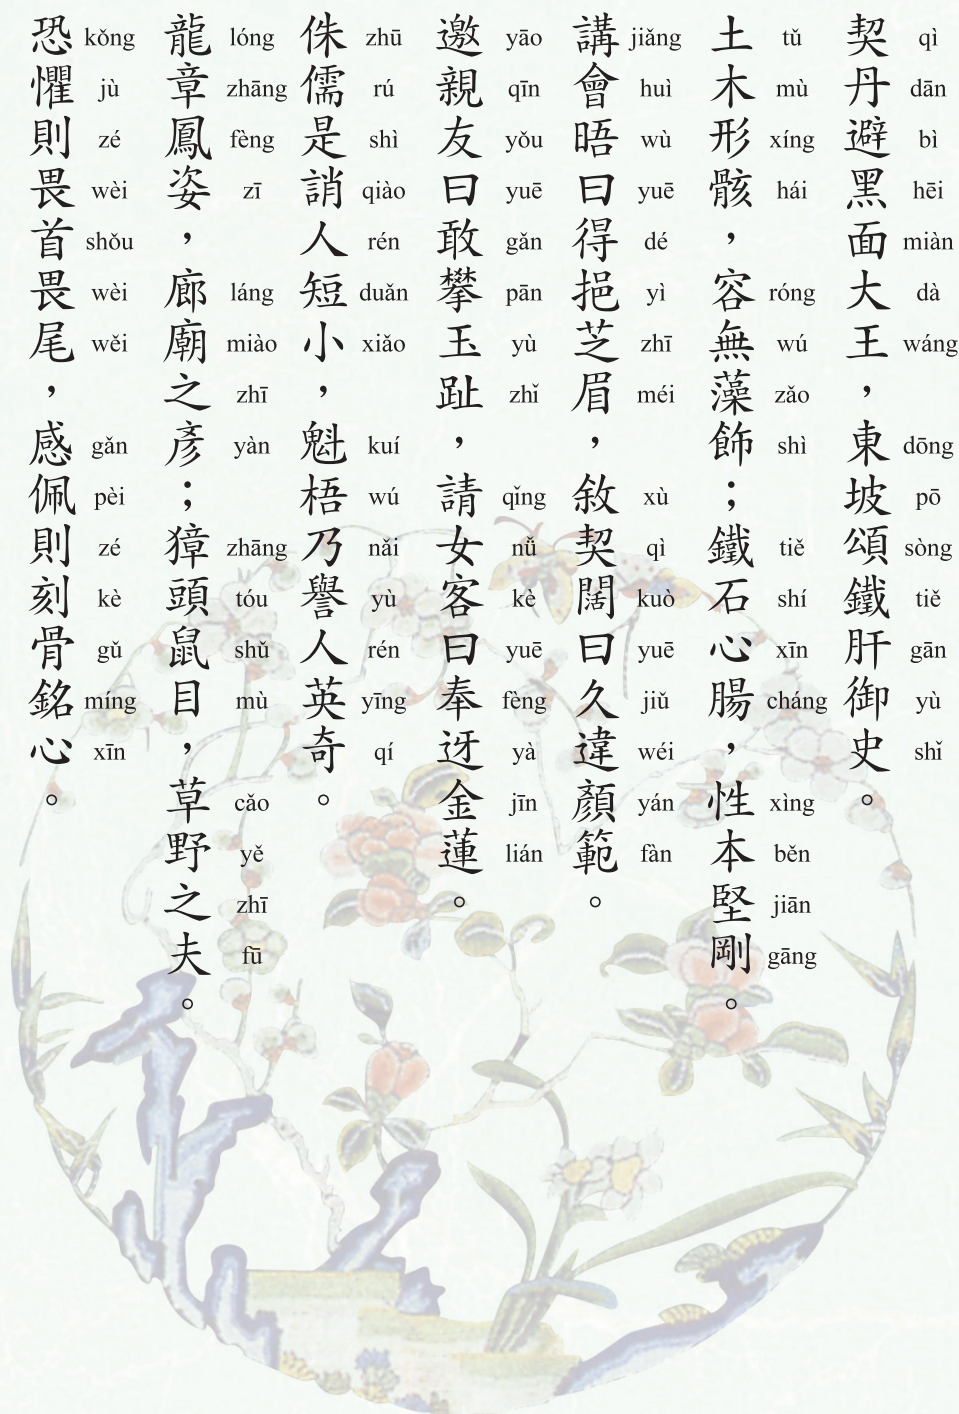 契丹避黑面大王，東坡頌鐵肝御史。
qì dān bì hēi miàn dà wáng dōng pō sòng tiě gān yù shǐ
土木形骸，容無藻飾；鐵石心腸，性本堅剛。
tǔ mù xíng hái róng wú zǎo shì tiě shí xīn cháng xìng běn jiān gāng
講會晤曰得挹芝眉，敘契闊曰久違顏範。
jiǎng huì wù yuē dé yì zhī méi xù qì kuò yuē jiǔ wéi yán fàn
邀親友曰敢攀玉趾，請女客曰奉迓金蓮。
yāo qīn yǒu yuē gǎn pān yù zhǐ qǐng nǚ kè yuē fèng yà jīn lián
侏儒是誚人短小，魁梧乃譽人英奇。
zhū rú shì qiào rén duǎn xiǎo kuí wú nǎi yù rén yīng qí
龍章鳳姿，廊廟之彥；獐頭鼠目，草野之夫。
lóng zhāng fèng zī láng miào zhī yàn zhāng tóu shǔ mù cǎo yě zhī fū
恐懼則畏首畏尾，感佩則刻骨銘心。
kǒng jù zé wèi shǒu wèi wěi gǎn pèi zé kè gǔ míng xīn